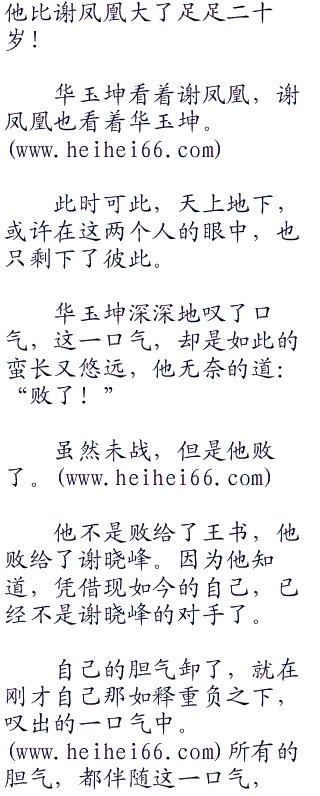 他比谢凤凰大了足足二十
岁！
华玉坤看着谢凤凰，谢
凤凰也看着华玉坤。
(www.heihei66.com)
此时可此，天上地下，
或许在这两个人的眼中，也
只剩下了彼此。
华玉坤深深地叹了口
气，这一口气，却是如此的
蛮长又悠远，他无奈的道：
“败了！”
虽然未战，但是他败
了。(www.heihei66.com)
他不是败给了王书，他
败给了谢晓峰。因为他知
道，凭借现如今的自己，已
经不是谢晓峰的对手了。
自己的胆气卸了，就在
刚才自己那如释重负之下，
叹出的一口气中。
(www.heihei66.com)所有的
胆气，都伴随这一口气，